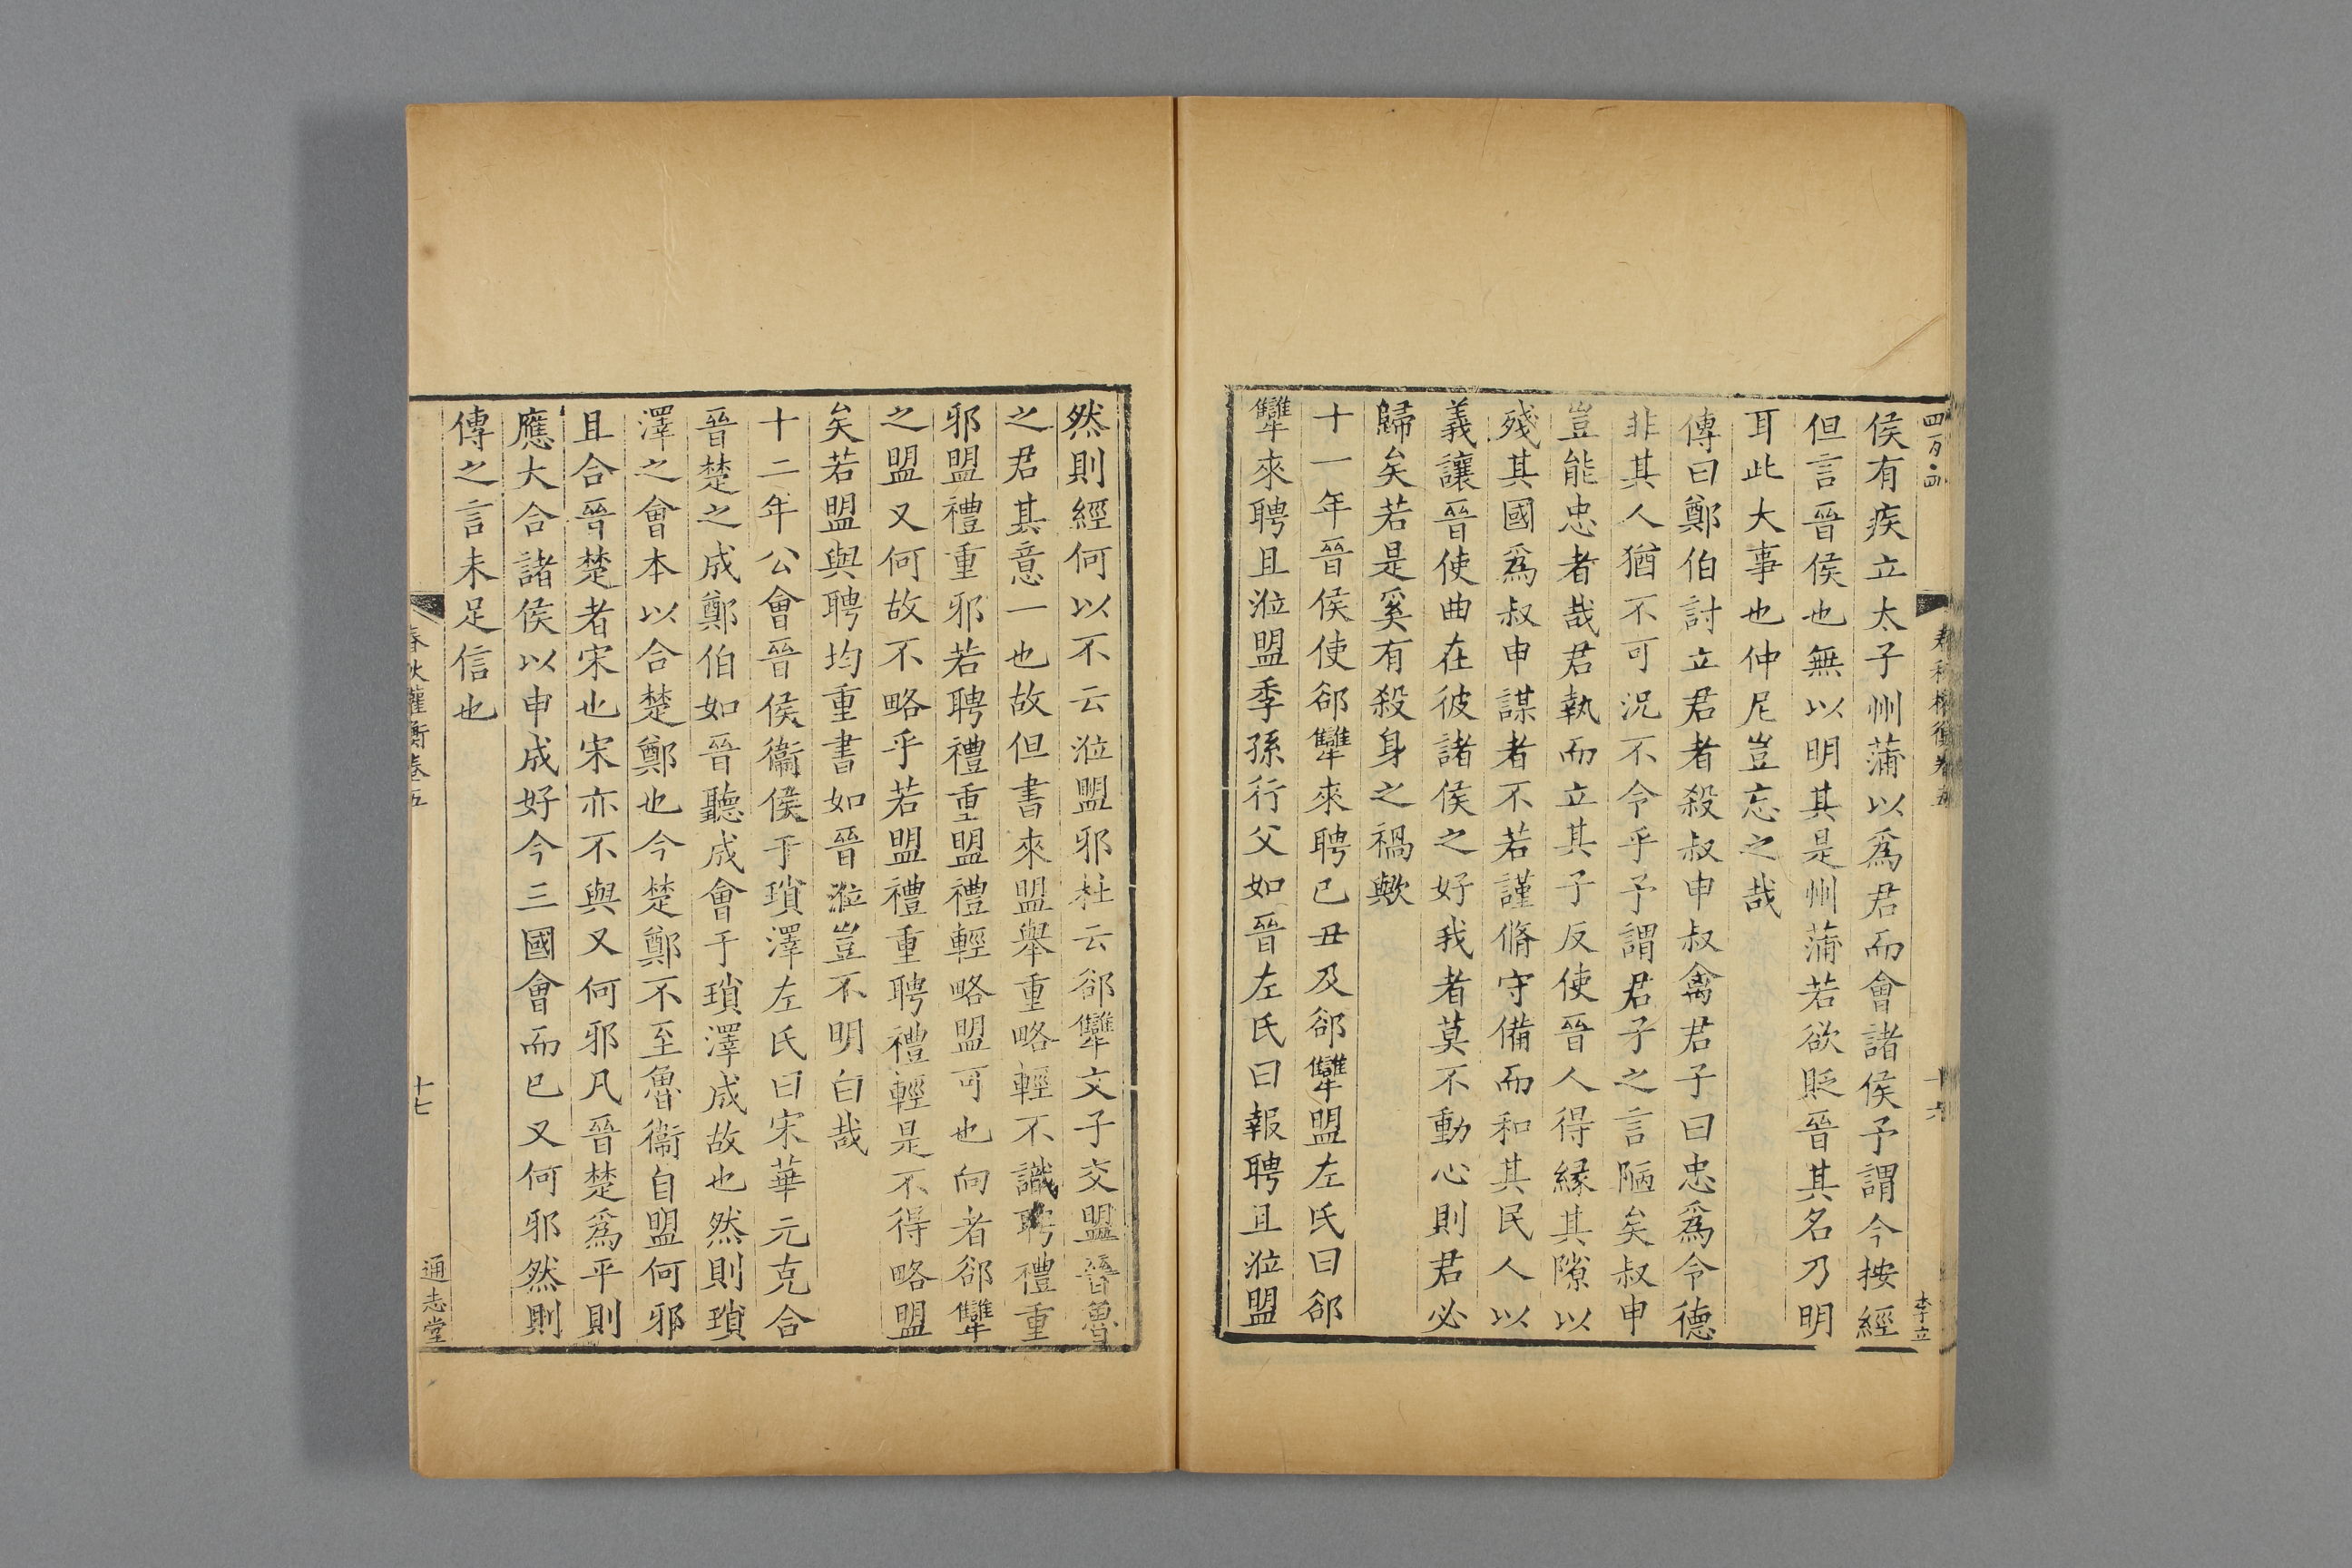 侯有疾立太子州蒲以爲君而會諸侯予謂今按經
但言晉侯也無以明其是州蒲若欲貶晉其名乃明
耳此大事也仲尼豈忘之哉
傳曰鄭伯討立君者殺叔申叔禽君子曰忠爲令德
非其人猶不可況不令乎予謂君子之言陋矣叔申
豈能忠者哉君執而立其子反使晉人得緣其隙以
殘其國爲叔申謀者不若謹脩守備而和其民人以
義讓晉使曲在彼諸侯之好我者莫不動心則君必
歸矣若是奚有殺身之禍歟
十一年晉侯使郤犫來聘已丑及郤犫盟左氏曰郤
犫來聘且涖盟季孫行父如晉左氏曰報聘且涖盟
然則經何以不云涖盟邪杜云郤犫文子交盟晉魯
之君其意一也故但書來盟舉重略輕不識聘禮重
邪盟禮重邪若聘禮重盟禮輕略盟可也向者郤犫
之盟又何故不略乎若盟禮重聘禮輕是不得略盟
矣若盟與聘均重書如晉涖豈不明白哉
十二年公會晉侯衞侯于瑣澤左氏曰宋華元克合
晉楚之成鄭伯如晉聽成會于瑣澤成故也然則瑣
澤之會本以合楚鄭也今楚鄭不至魯衞自盟何邪
且合晉楚者宋也宋亦不與又何邪凡晉楚爲平則
應大合諸侯以申成好今三國會而已又何邪然則
傳之言未足信也
春秋權衡卷五
十七
通志堂
春秋權衡卷五
十六
李立